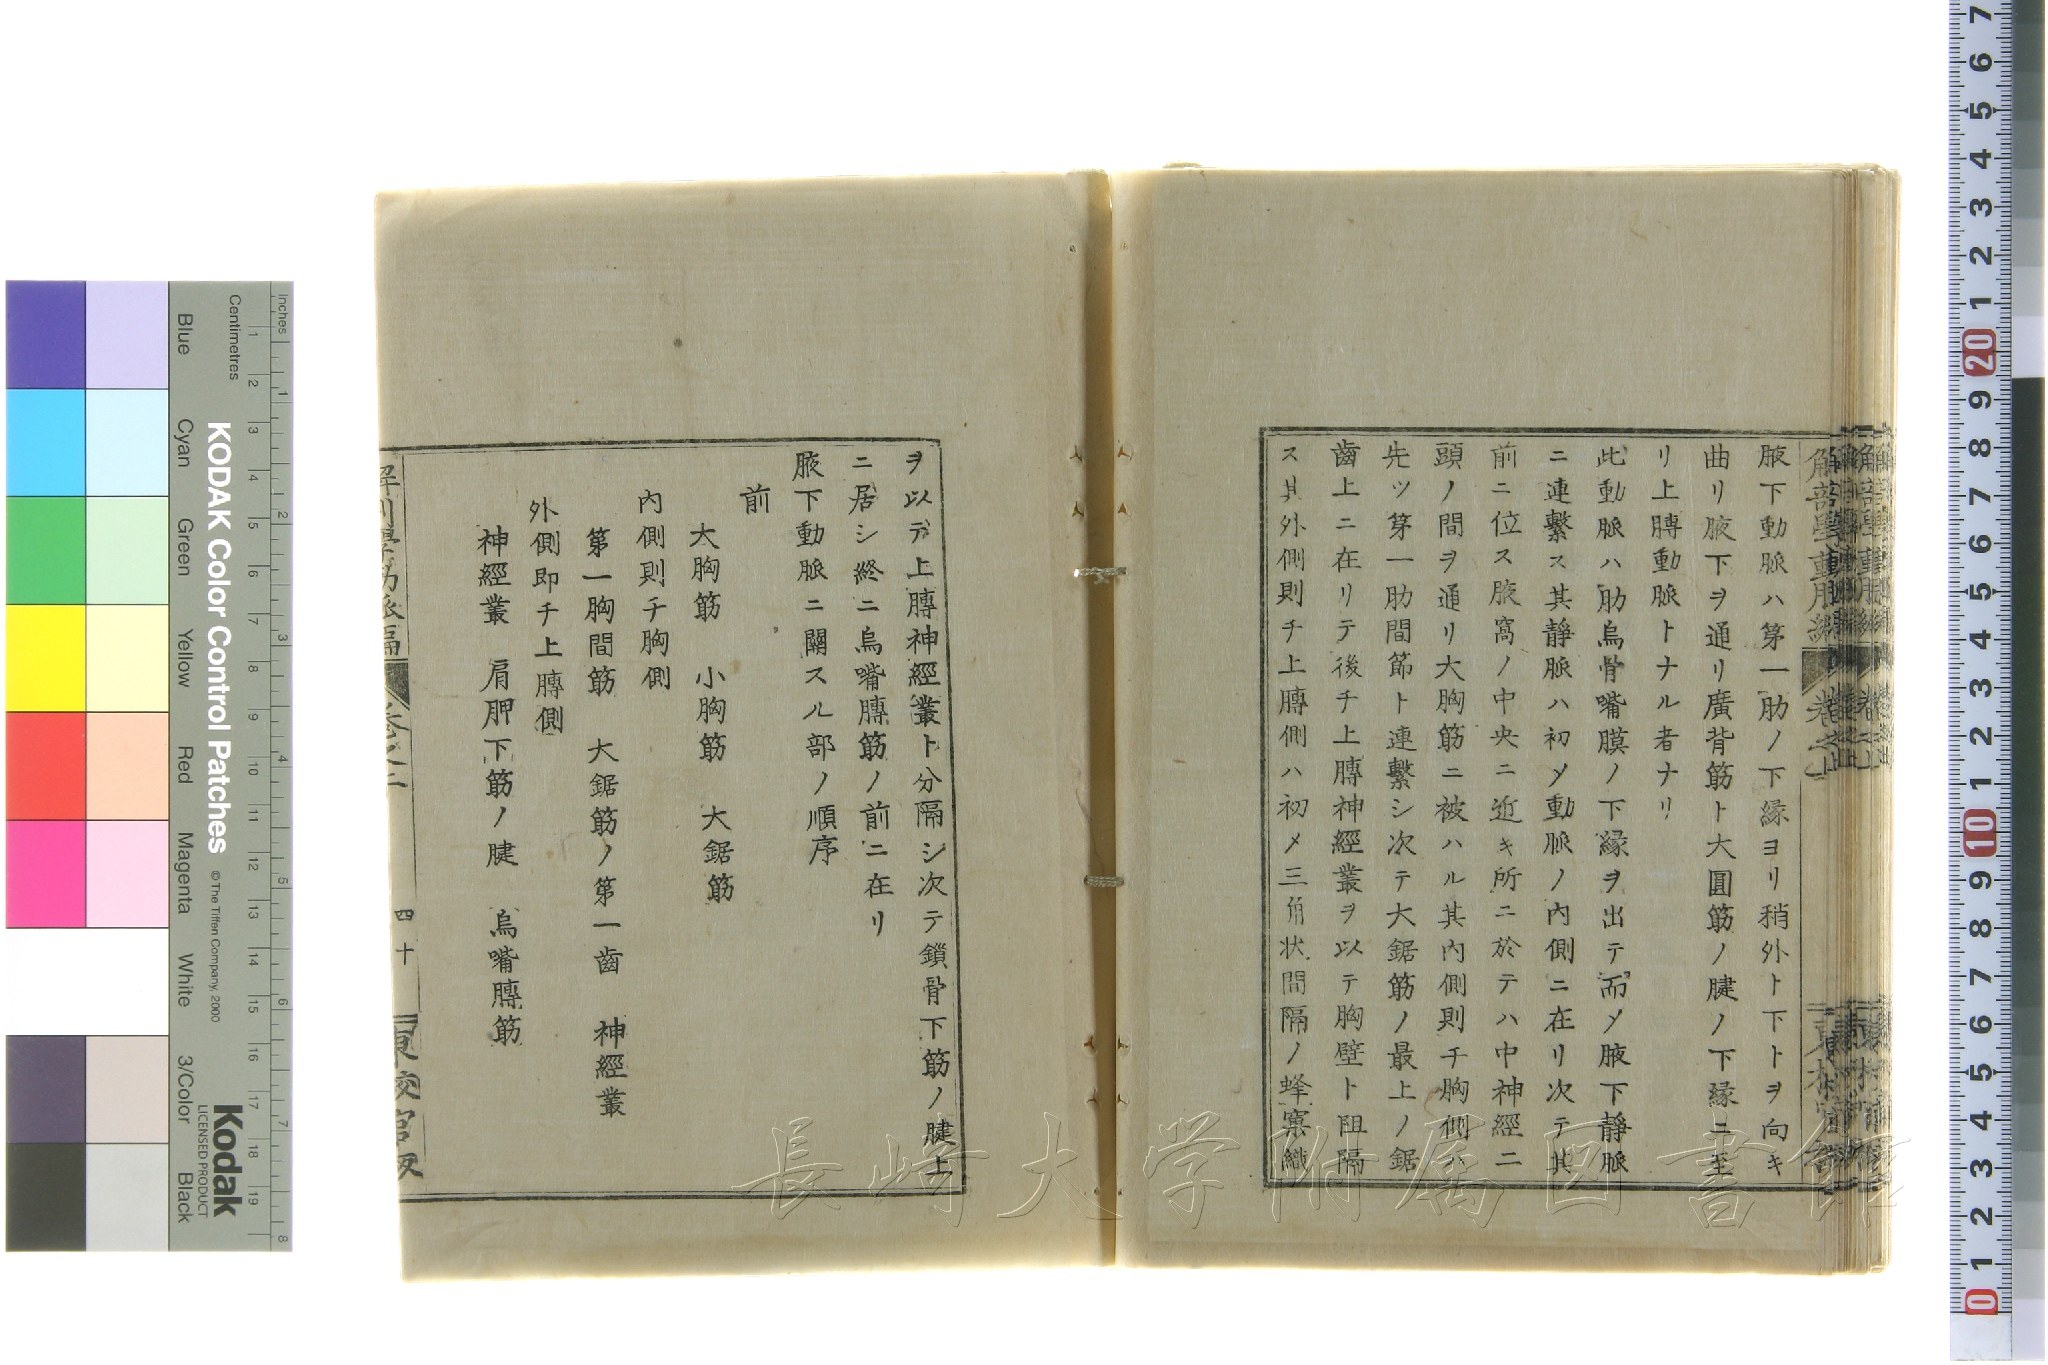 腋下動脈ハ第一肋ノ下縁ヨリ稍外ト下トヲ向キ
曲リ腋下ヲ通リ廣背筋ト大圓筋ノ腱ノ下縁ニ至
リ上膊動脈トナル者ナリ
此動脈ハ肋烏骨嘴膜ノ下縁ヲ出テ而〆腋下靜脈
ニ連繫ス其靜脈ハ初メ動脈ノ內側ニ在リ次テ其
前ニ位ス腋窩ノ中央ニ近キ所ニ於テハ中神經二
頭ノ間ヲ通リ大胸筋ニ被ハル其內側則チ胸側ハ
先ツ第一肋間節ト連繫シ次テ大鋸筋ノ最上ノ鋸
齒上ニ在リテ後チ上膊神經叢ヲ以テ胸壁ト阻隔
ス其外側則チ上膊側ハ初メ三角状間隔ノ蜂窠織
ヲ以テ上膊神經叢ト分隔シ次テ鎖骨下筋ノ腱上
ニ居シ終ニ烏嘴膊筋ノ前ニ在リ
腋下動脈ニ關スル部ノ順序
前
大胸筋 小胸筋 大鋸筋
內側則チ胸側
第一胸間筋 大鋸筋ノ第一齒 神經叢
外側即チ上膊側
神經叢 肩胛下筋ノ腱 烏嘴膊筋
四十
長崎大学附属図書館
KODAK Color Control Patches
© The Tiffen Company, 2000
Kodak
LICENSED PRODUCT
Inches
Centimetres
Blue
Cyan
Green
Yellow
Red
Magenta
White
3/Color
Black